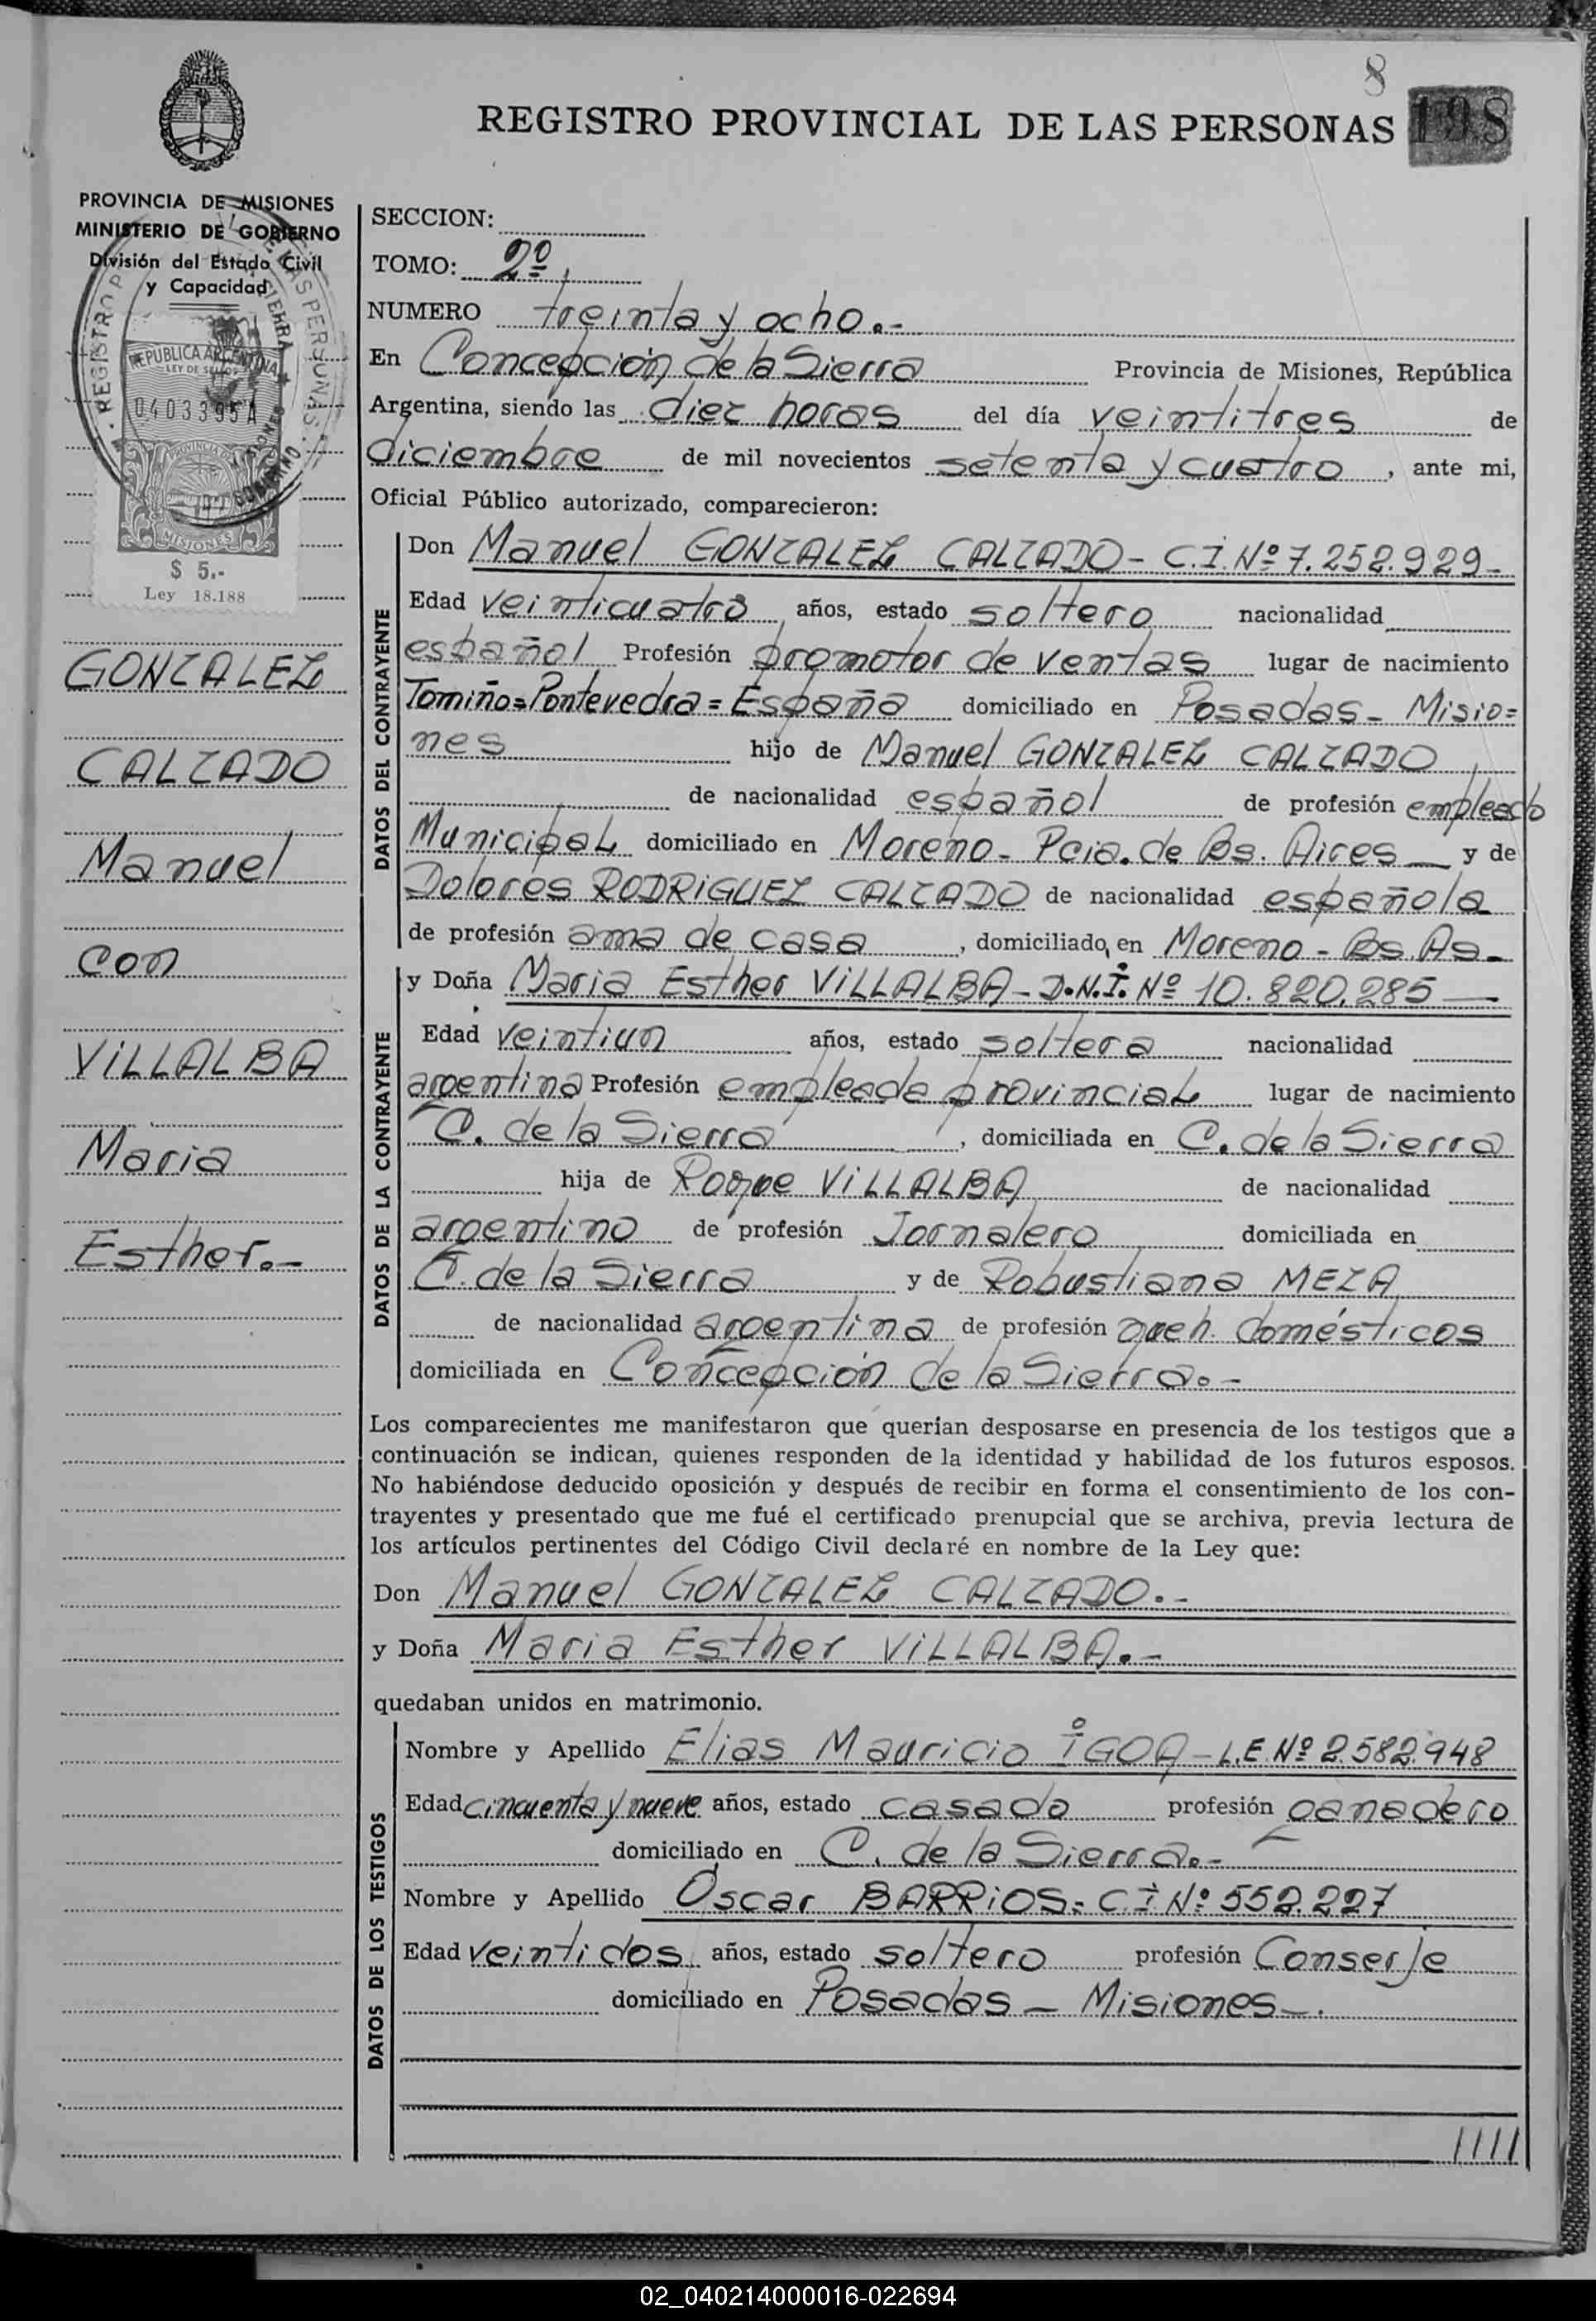 8
REGISTRO PROVINCIAL DE LAS PERSONAS 198
PROVINCIA DE MISIONES
MINISTERIO DE GOBIERNO
División del Estado Civil
y Capacidad
REPUBLICA ARGENTINA
LEY DE SELLOS
0403395A
MISIONES
$ 5.-
Ley 18.188
GONZALEZ
CALZADO
Manuel
con
ViLLALBA
Maria
Esther.-
SECCION:
TOMO: 2º
NUMERO treinta y ocho.-
En Concepción de la Sierra Provincia de Misiones, República
Argentina, siendo las diez horas del día veintitres de
diciembre de mil novecientos setenta y cuatro, ante mi,
Oficial Público autorizado, comparecieron:
DATOS DEL CONTRAYENTE
Don Manuel GONZALEZ CALZADO - C.I. Nº 7.252.929-
Edad veinticuatro años, estado soltero nacionalidad
español Profesión promotor de ventas lugar de nacimiento
Tomiño=Pontevedra=España domiciliado en Posadas - Misio=
nes hijo de Manuel GONZALEZ CALZADO
de nacionalidad español de profesión empleado
Municipal domiciliado en Moreno - Pcia. de Bs. Aires - y de
Dolores RODRiGUEZ CALZADO de nacionalidad española
de profesión ama de casa, domiciliado en Moreno - Bs. As-
DATOS DE LA CONTRAYENTE
y Doña Maria Esther ViLLALBA - D.N.I. Nº 10.820.285 -
Edad veintiun años, estado soltera nacionalidad
argentina Profesión empleada provincial lugar de nacimiento
C. de la Sierra, domiciliada en C. de la Sierra
hija de Roque ViLLALBA de nacionalidad
argentino de profesión Jornalero domiciliada en
C. de la Sierra y de Robustiana MEZA
de nacionalidad argentina de profesión queh. domésticos
domiciliada en Concepción de la Sierra.-
Los comparecientes me manifestaron que querían desposarse en presencia de los testigos que a
continuación se indican, quienes responden de la identidad y habilidad de los futuros esposos.
No habiéndose deducido oposición y después de recibir en forma el consentimiento de los con-
trayentes y presentado que me fué el certificado prenupcial que se archiva, previa lectura de
los artículos pertinentes del Código Civil declaré en nombre de la Ley que:
Don Manuel GONZALEZ CALZADO.-
y Doña Maria Esther ViLLALBA.-
quedaban unidos en matrimonio.
DATOS DE LOS TESTIGOS
Nombre y Apellido Elias Mauricio IGOA - L.E. Nº 2.582.948
Edad cincuenta y nueve años, estado casado profesión ganadero
domiciliado en C. de la Sierra.-
Nombre y Apellido Oscar BARRiOS - C.I Nº 552.227
Edad veintidos años, estado soltero profesión Conserje
domiciliado en Posadas - Misiones -.
////
02_040214000016-022694